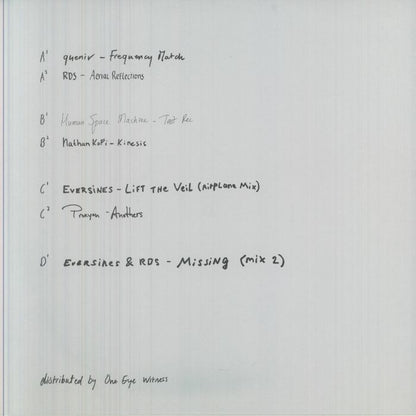 A¹ queniv - Frequency Match
A² RDS - Aerial Reflections
B¹ Human Space Machine - Test Rec
B² Nathan Kofi - Kinesis
C¹ EVERSINES - LIFT THE VEIL (AIRPLANE MIX)
C² - Anothers
D¹ EVERSINES & RDS - MISSING (MIX 2)
distributed by One Eye Witness